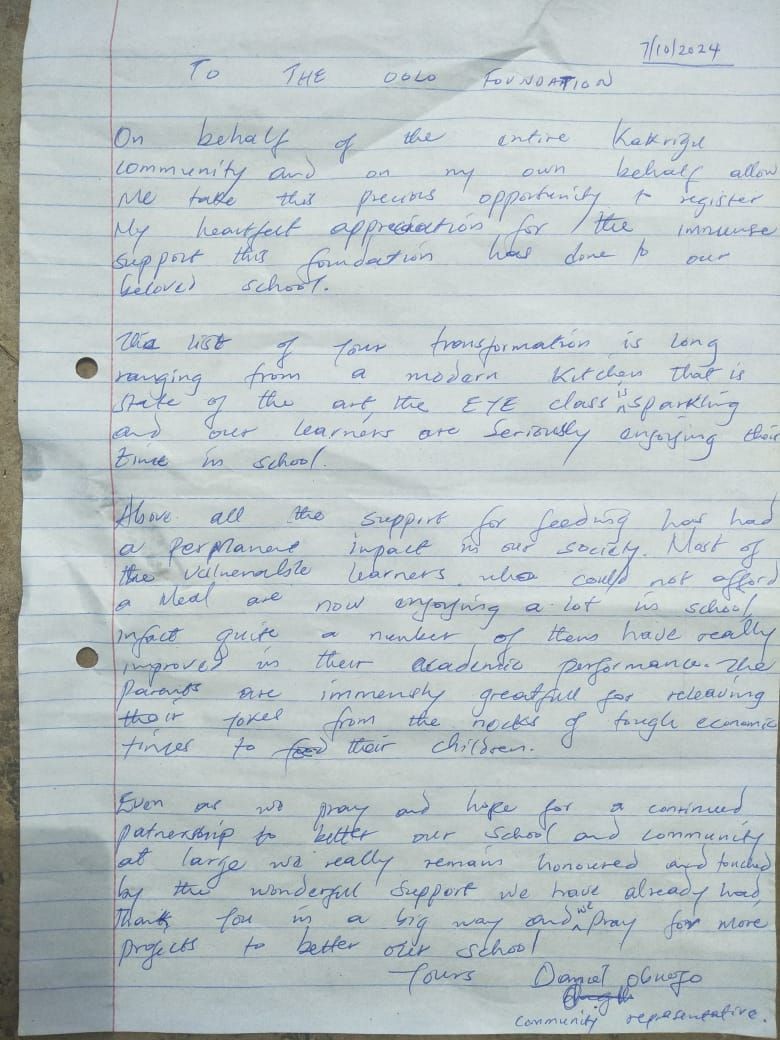 7/10/2024
TO THE OOLO FOUNDATION
On behalf of the entire Kakrigu
community and on my own behalf allow
Me take this precious opportunity to register
My heartfect appreciation for the immense
support this foundation has done to our
beloved school.
The list of your transformation is long
ranging from a modern Kitchen that is
state of the art, the EYE class is sparkling
and our learners are Seriously enjoying their
time in school.
Above all the support for feeding has had
a permanent impact in our society. Most of
the vulnerable learners who could not afford
a Meal are now enjoying a lot in school,
infact quite a number of them have really
improved in their academic performance. The
Parents are immensly greatfull for releaving
their yokes from the necks of tough economic
times to feed their children.
Even as we pray and hope for a continued
patnership to better our school and community
at large we really remain honoured and touched
by the wonderful support we have already had,
thank you in a big way and we pray for more
projects to better our school
Yours Daniel
community representative.